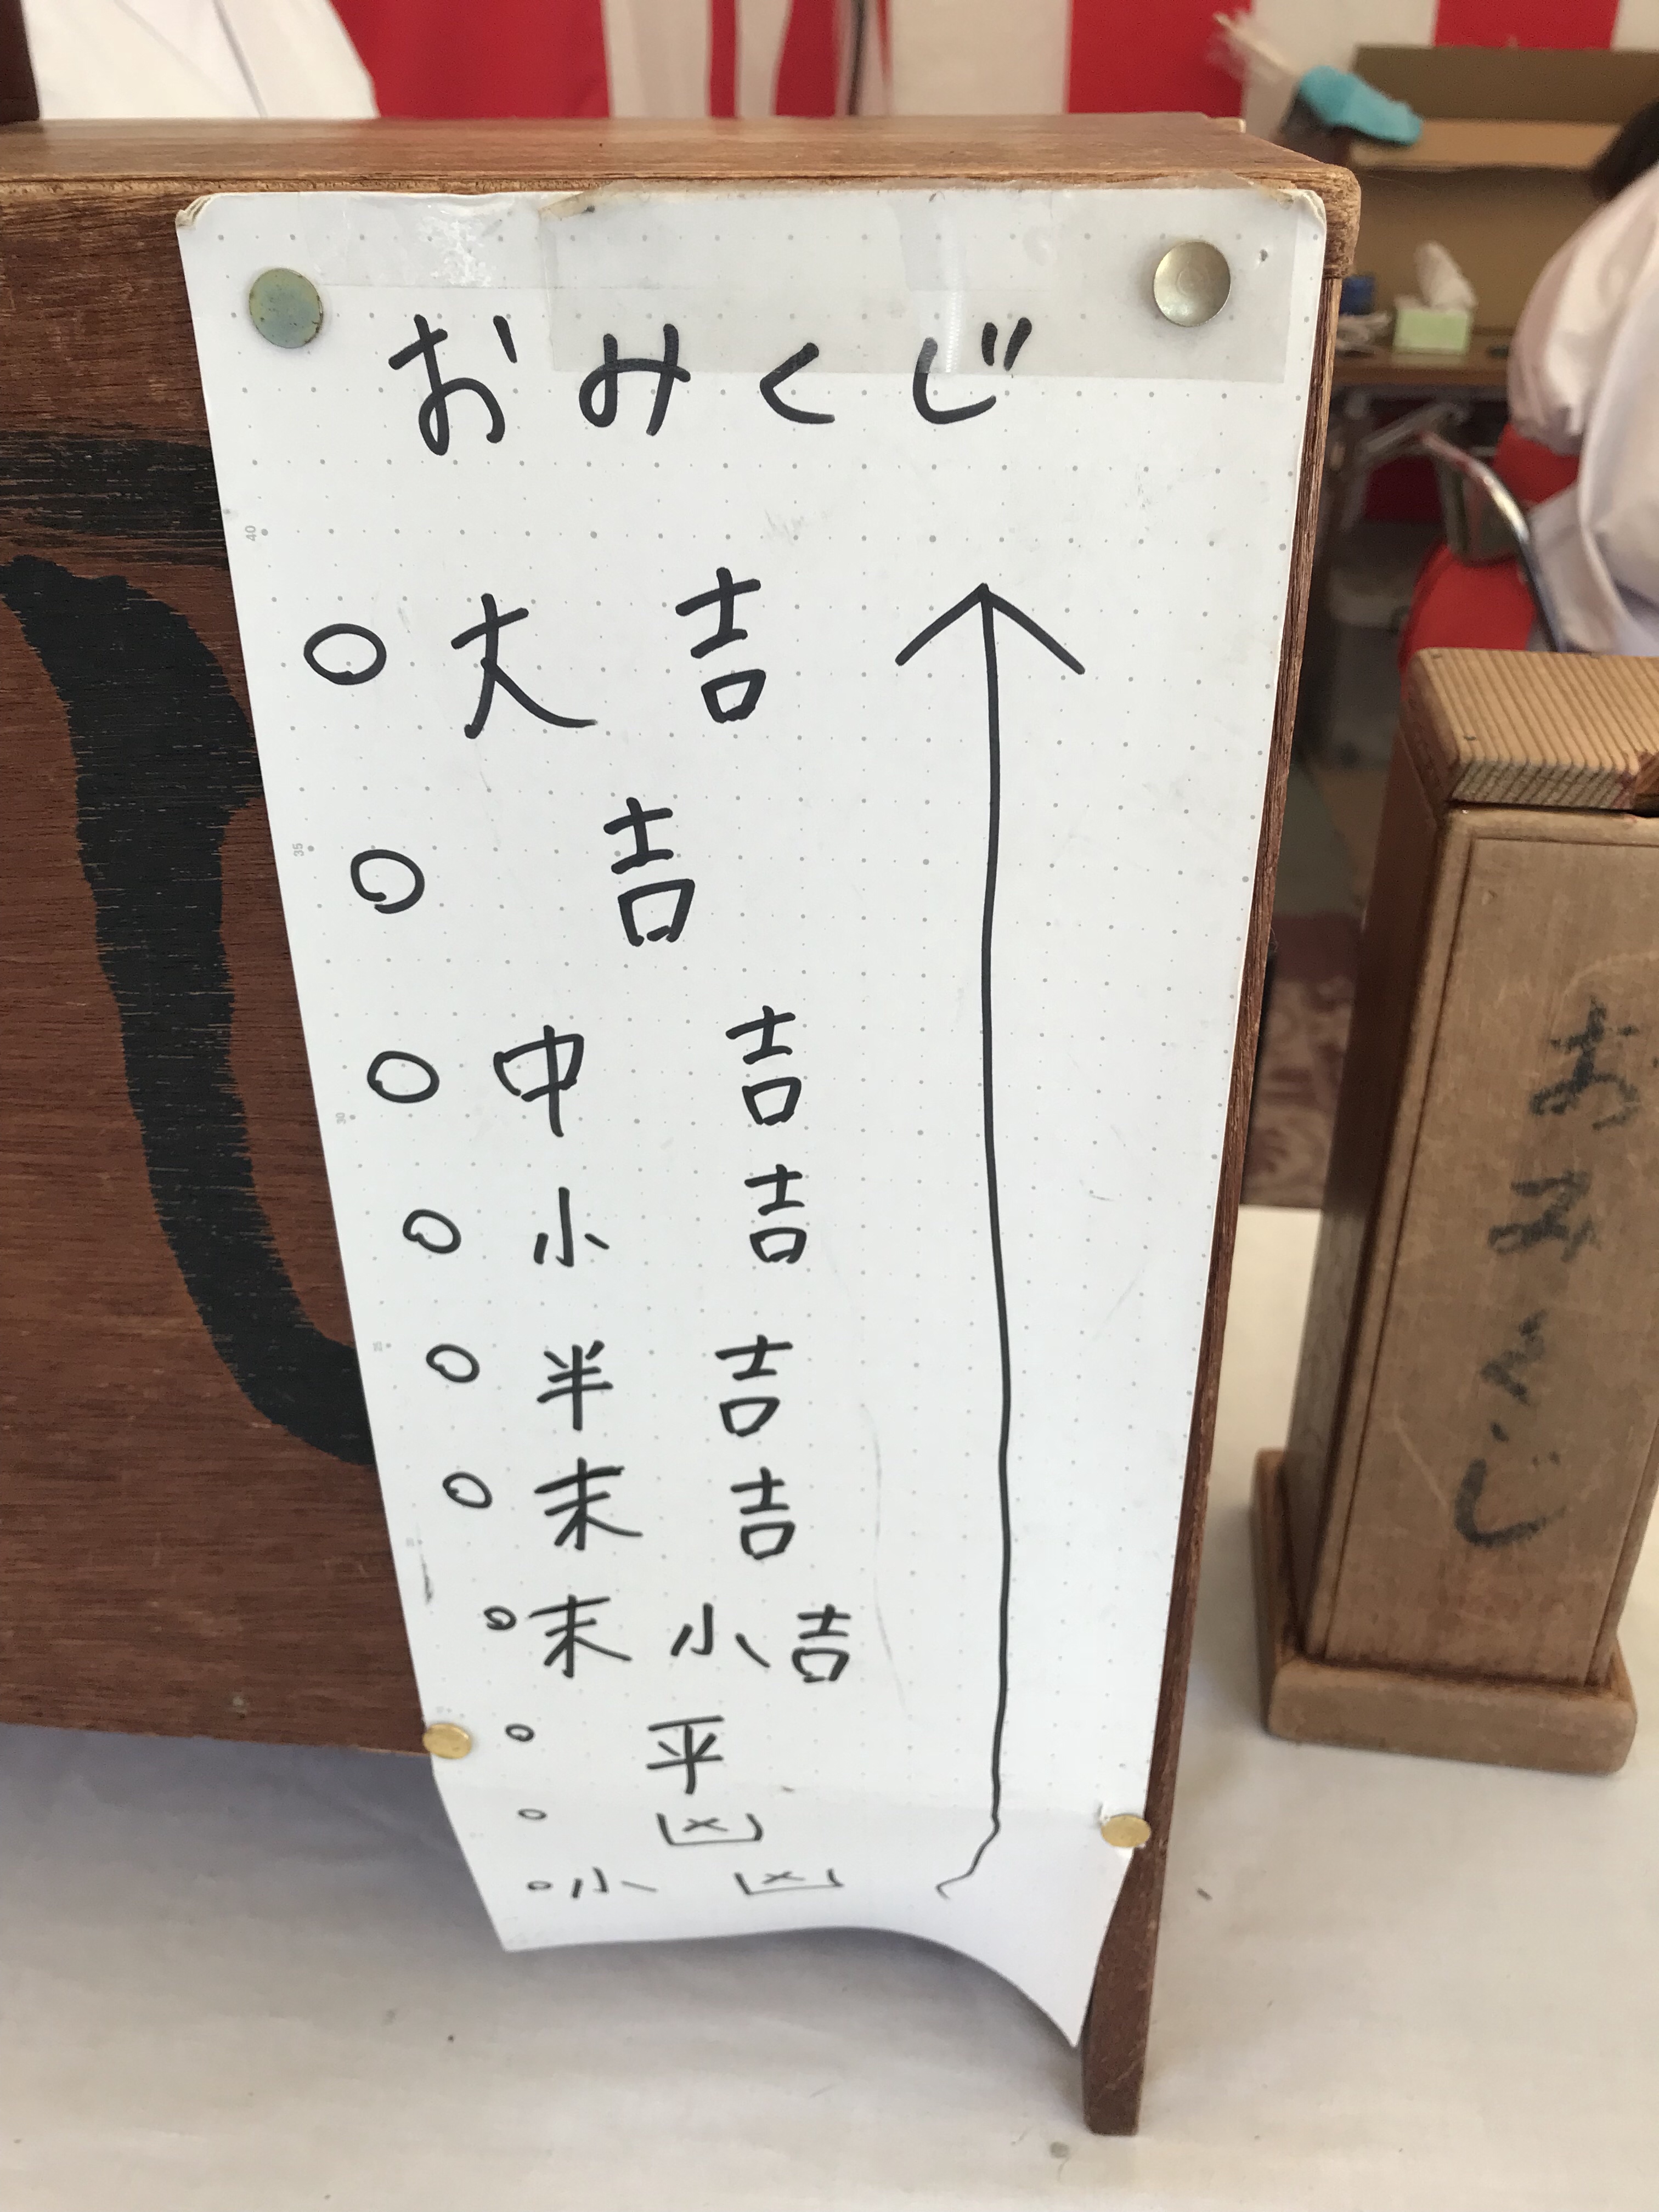 おみくじ
○ 大吉
○ 吉
○ 中吉
○ 小吉
○ 半吉
○ 末吉
○ 末小吉
○ 平
○ 凶
○ 小凶
おみくじ
40
35
30
25